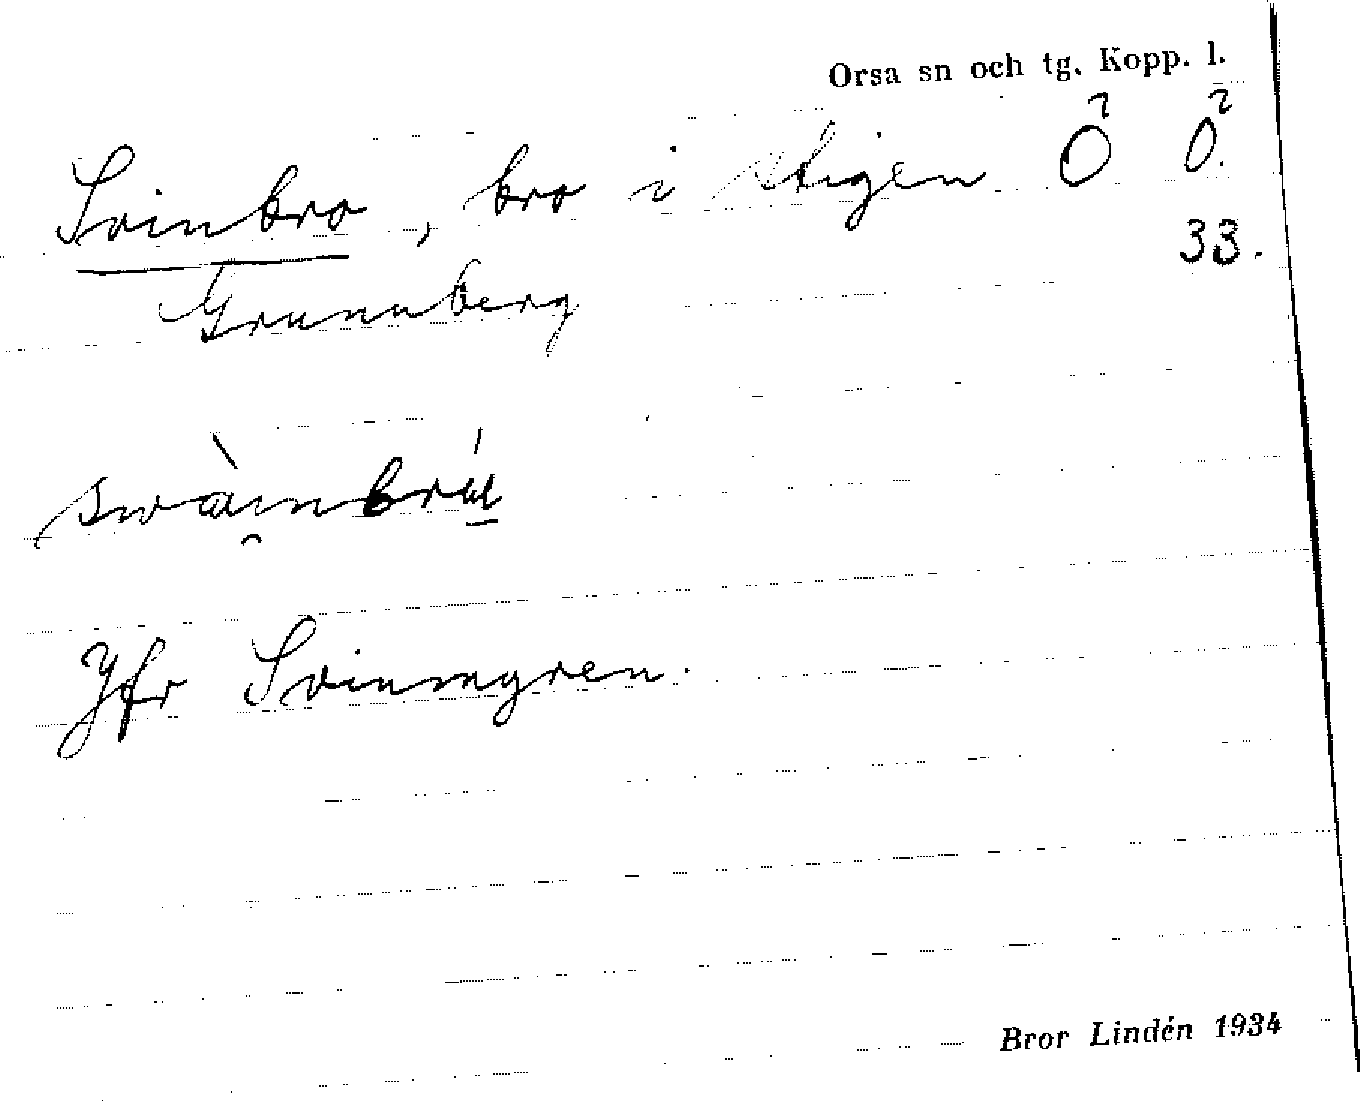 Orsa sn och tg. Kopp. l.
Svinbro, bro i stigen Ö Ö.
33.
Grunuberg
swàinbrú
Jfr Svinmyren.
Bror Lindén 1934